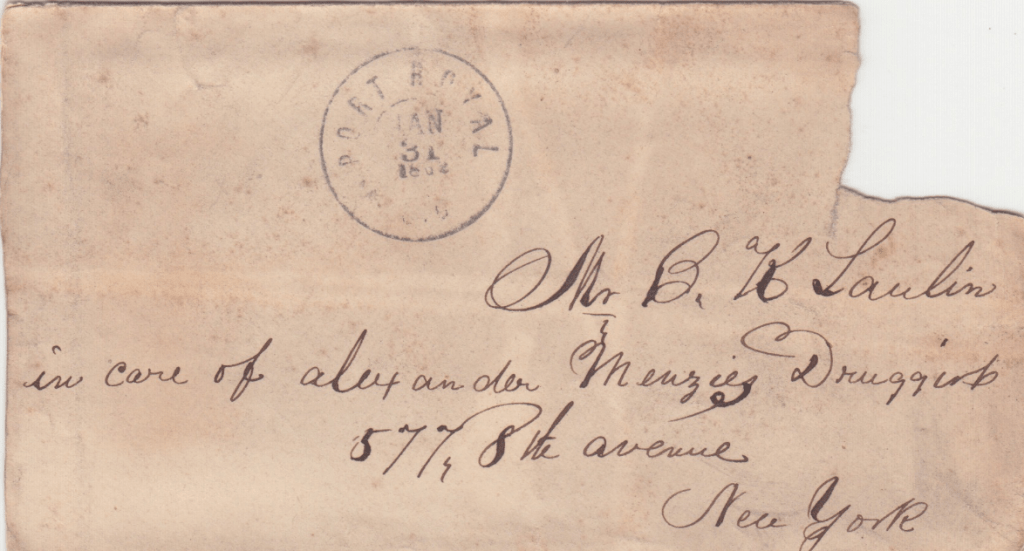 PORT ROYAL
JAN
31
1862
S.C.
Mr B. K Laulin
in care of alexander Menzies Druggist
577, 8th avenue
New York